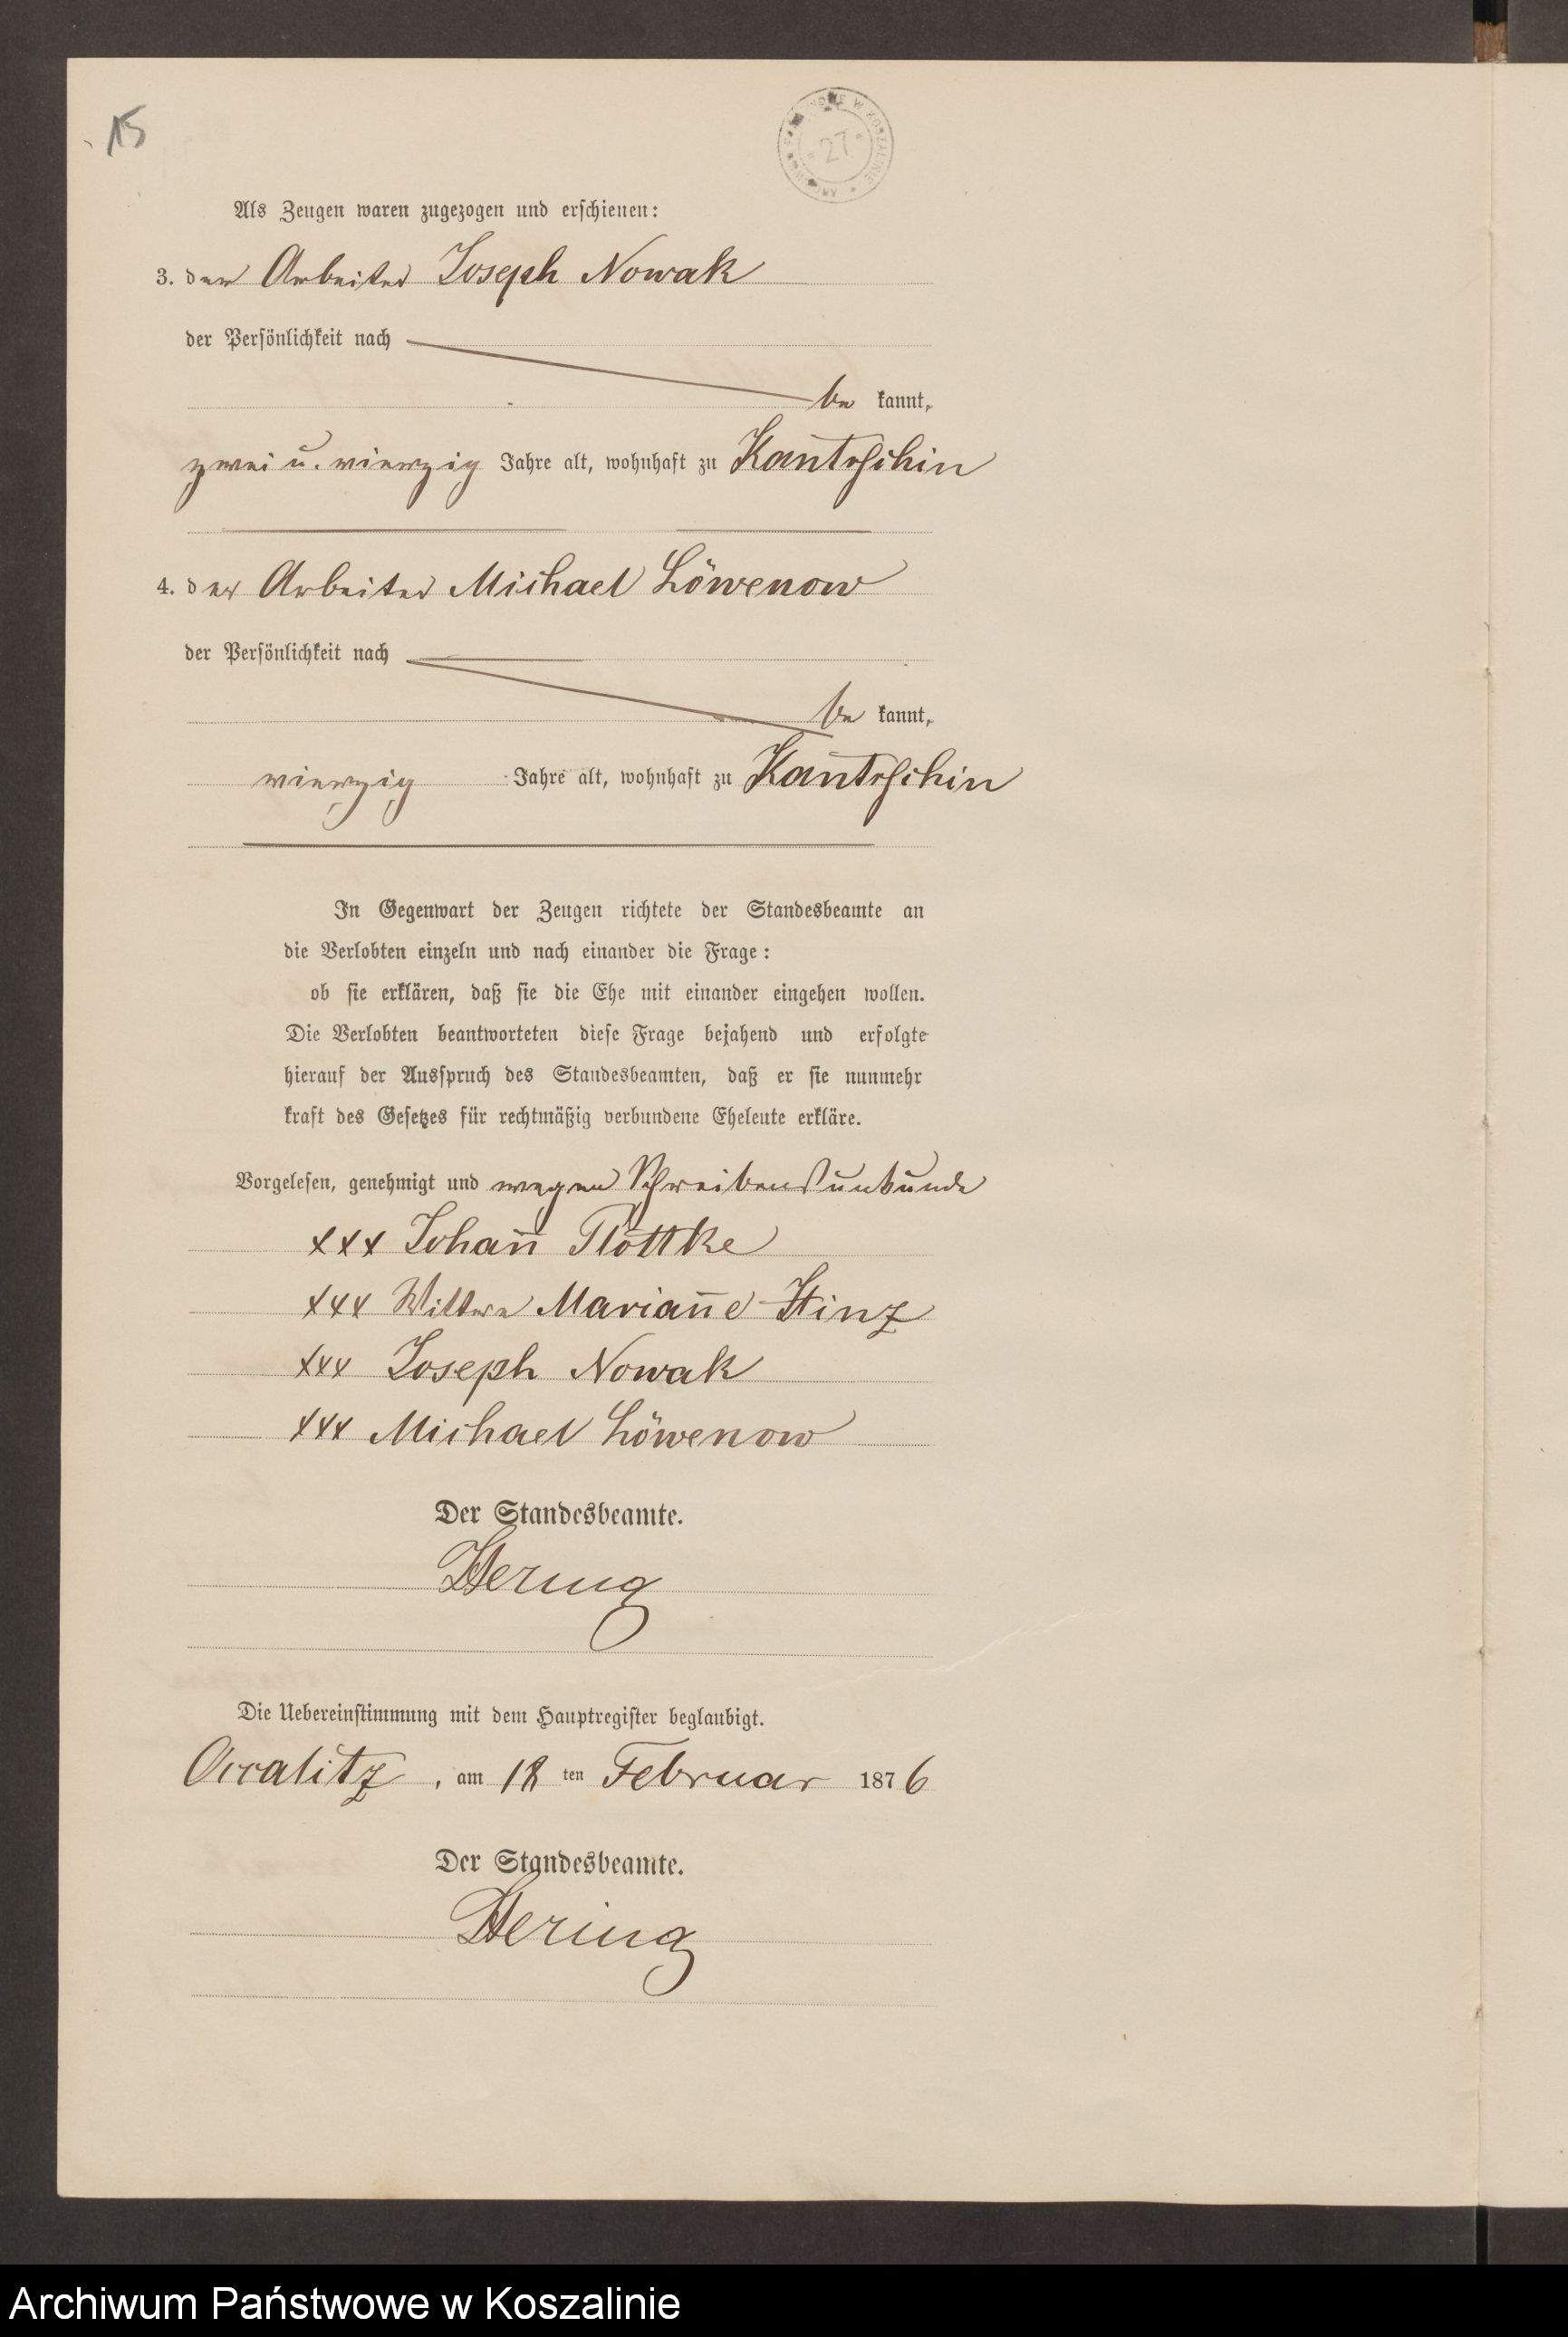 15
ARCHIWUM PAŃSTWOWE W KOSZALINIE
27
Als Zeugen waren zugezogen und erschienen:
3. der Arbeiter Joseph Nowak
der Persönlichkeit nach
be kannt,
zwei u. vierzig Jahre alt, wohnhaft zu Kantrschin
4. der Arbeiter Michael Löwenow
der Persönlichkeit nach
be kannt,
vierzig Jahre alt, wohnhaft zu Kantrschin
In Gegenwart der Zeugen richtete der Standesbeamte an
die Verlobten einzeln und nach einander die Frage:
ob sie erklären, daß sie die Ehe mit einander eingehen wollen.
Die Verlobten beantworteten diese Frage bejahend und erfolgte
hierauf der Ausspruch des Standesbeamten, daß er sie nunmehr
kraft des Gesetzes für rechtmäßig verbundene Eheleute erkläre.
Vorgelesen, genehmigt und wegen Schreibensunkunde
xxx Johan̄ Plottke
xxx Wittwe Marian̄e Hinz
xxx Joseph Nowak
xxx Michael Löwenow
Der Standesbeamte.
Hering
Die Uebereinstimmung mit dem Hauptregister beglaubigt.
Occalitz, am 18 ten Februar 1876
Der Standesbeamte.
Hering
Archiwum Państwowe w Koszalinie